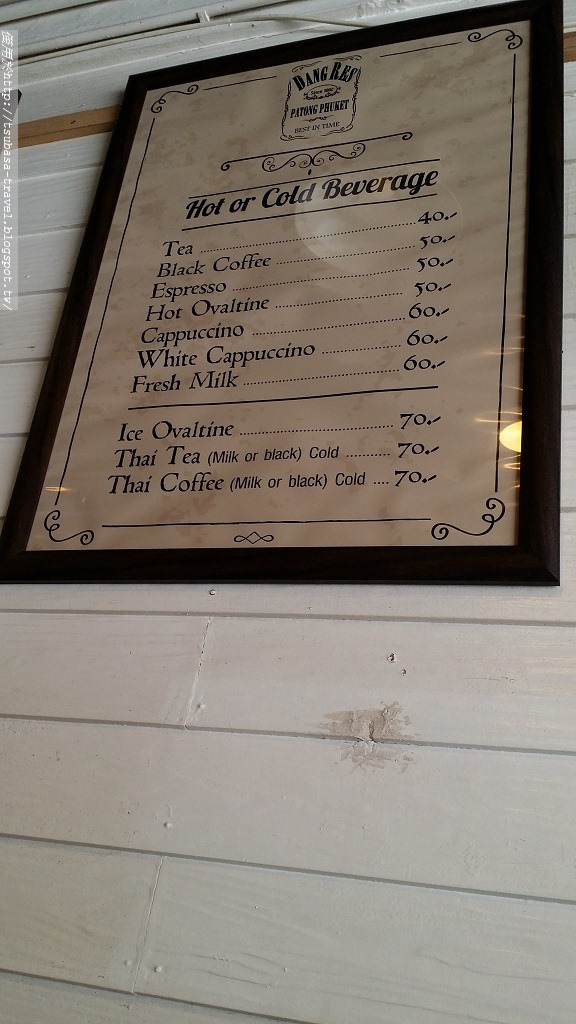 DANG RES
PATONG PHUKET
BEST IN TIME
Hot or Cold Beverage
Tea ........ 40.-
Black Coffee ........ 50.-
Espresso ........ 50.-
Hot Ovaltine ........ 50.-
Cappuccino ........ 60.-
White Cappuccino ........ 60.-
Fresh Milk ........ 60.-
Ice Ovaltine ........ 70.-
Thai Tea (Milk or black) Cold ........ 70.-
Thai Coffee (Milk or black) Cold .... 70.-
http://tsubasa-travel.blogspot.tv/